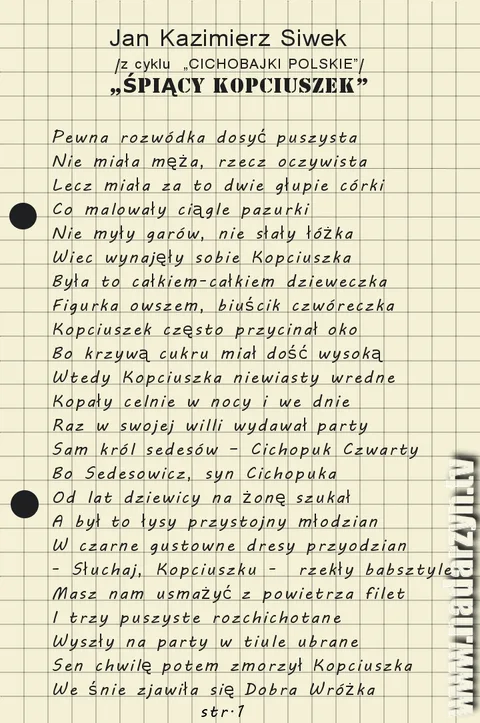 Jan Kazimierz Siwek
/z cyklu „CICHOBAJKI POLSKIE”/
„ŚPIĄCY KOPCIUSZEK”
Pewna rozwódka dosyć puszysta
Nie miała męża, rzecz oczywista
Lecz miała za to dwie głupie córki
Co malowały ciągle pazurki
Nie myły garów, nie stały łóżka
Wiec wynajęły sobie Kopciuszka
Była to całkiem-całkiem dzieweczka
Figurka owszem, biuścik czwóreczka
Kopciuszek często przycinał oko
Bo krzywą cukru miał dość wysoką
Wtedy Kopciuszka niewiasty wredne
Kopały celnie w nocy i we dnie
Raz w swojej willi wydawał party
Sam król sedesów – Cichopuk Czwarty
Bo Sedesowicz, syn Cichopuka
Od lat dziewicy na żonę szukał
A był to łysy przystojny młodzian
W czarne gustowne dresy przyodzian
- Słuchaj, Kopciuszku - rzekły babsztyle
Masz nam usmażyć z powietrza filet
I trzy puszyste rozchichotane
Wyszły na party w tiule ubrane
Sen chwilę potem zmorzył Kopciuszka
We śnie zjawiła się Dobra Wróżka
str.1
www.nadarzyn.tv